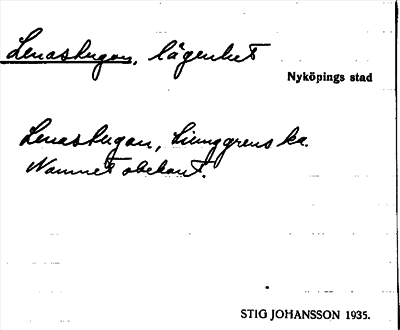 Lenastugan, lägenhet
Nyköpings stad
Lenastugan, Liunggrenska.
Namnet obekant.
STIG JOHANSSON 1935.